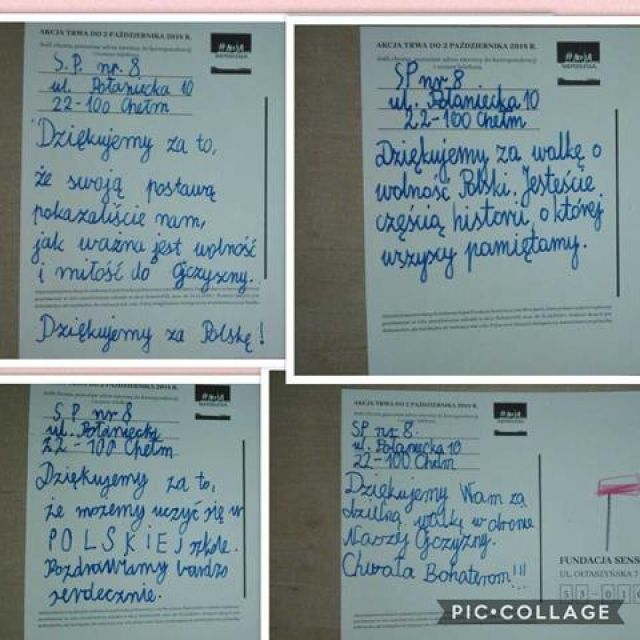 AKCJA TRWA DO 2 PAŹDZIERNIKA 2018 R.
S.P. nr. 8
ul. Połaniecka 10
22-100 Chełm
Dziękujemy za to,
że swoją postawą
pokazaliście nam,
jak ważna jest wolność
i miłość do Ojczyzny.
Dziękujemy za Polskę!
AKCJA TRWA DO 2 PAŹDZIERNIKA 2018 R.
SP nr 8
ul. Połaniecka 10
22-100 Chełm
Dziękujemy za walkę o
wolność Polski. Jesteście
częścią historii, o której
wszyscy pamiętamy.
AKCJA TRWA DO 2 PAŹDZIERNIKA 2018 R.
S.P. nr 8
ul. Połaniecka
22-100 Chełm
Dziękujemy za to,
że możemy uczyć się w
POLSKIEJ szkole.
Pozdrawiamy bardzo
serdecznie.
AKCJA TRWA DO 2 PAŹDZIERNIKA 2018 R.
SP nr 8.
ul. Połaniecka 10
22-100 Chełm
Dziękujemy Wam za
dzielną walkę w obronie
Naszej Ojczyzny.
Chwała Bohaterom!!!
FUNDACJA SENS
UL. OŁTASZYŃSKA 7
PIC•COLLAGE